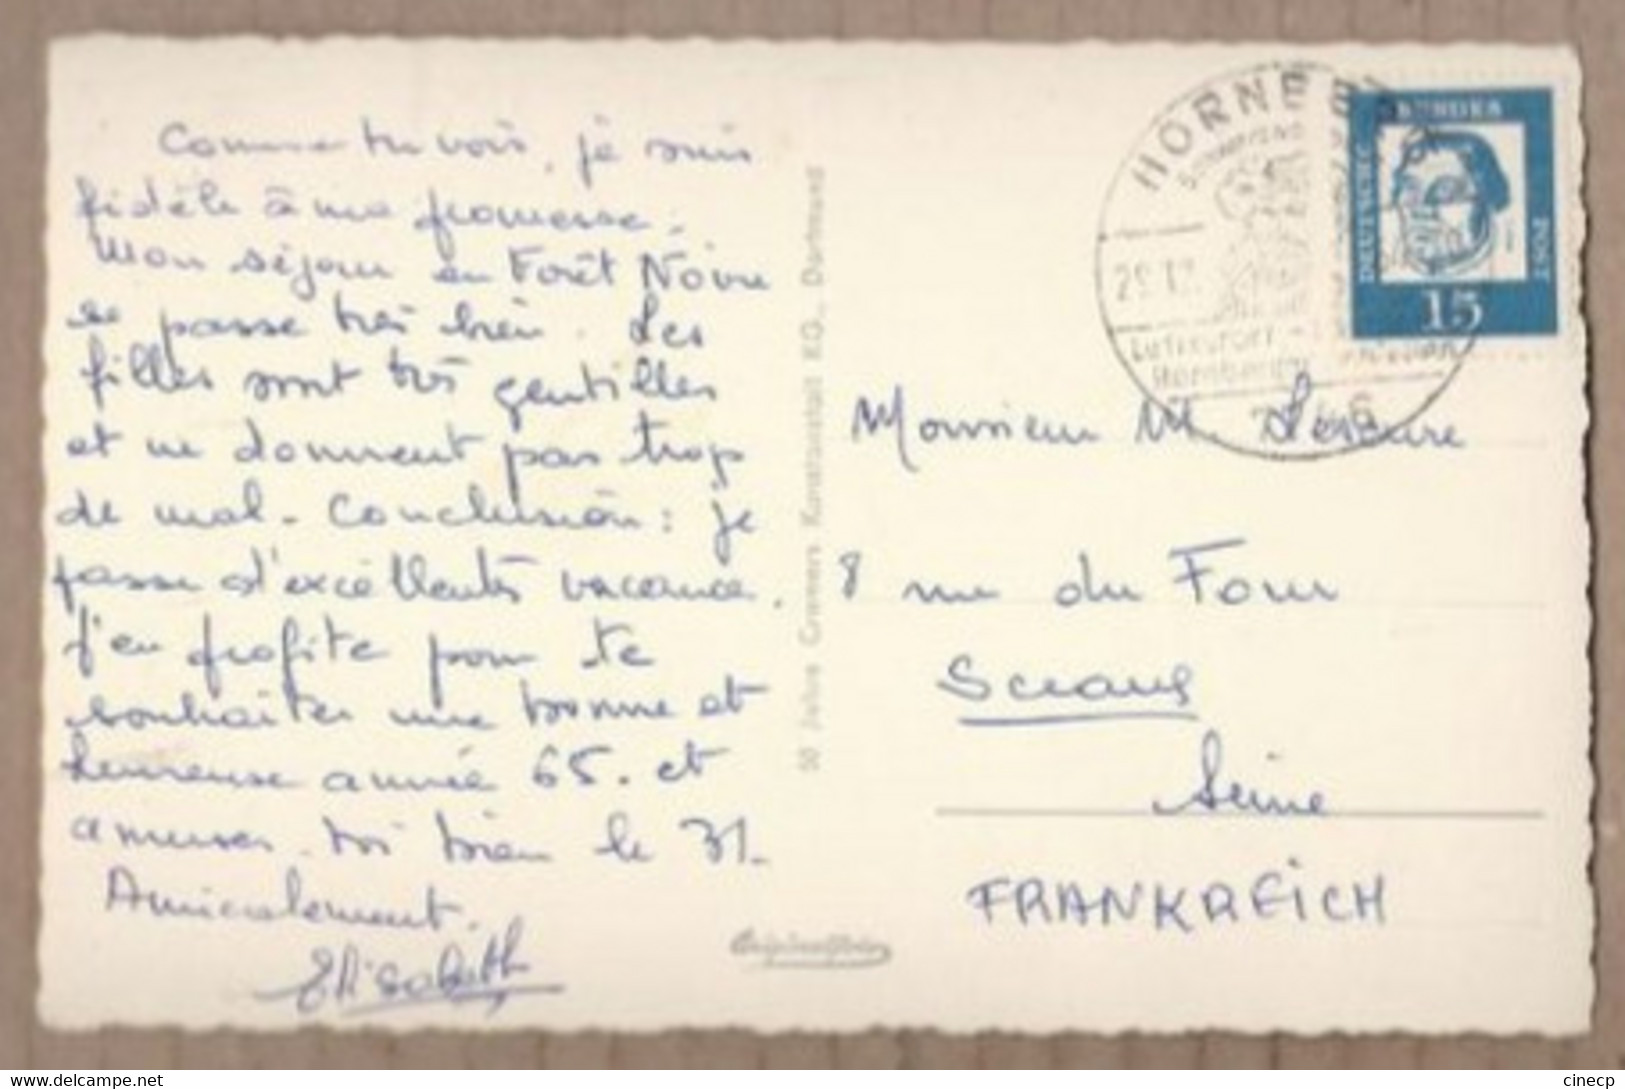 Comme tu vois, je suis
fidèle à ma promesse.
Mon séjour en Forêt Noire
se passe très bien. Les
filles sont très gentilles
et ne donnent pas trop
de mal. Conclusion : je
passe d'excellentes vacances.
J'en profite pour te
souhaiter une bonne et
heureuse année 65. et
amuses-toi bien le 31.
Amicalement.
Elisabeth
50 Jahre Cramers Kunstanstalt KG., Dortmund
HORNBERG
29.12.
Luftkurort
Hornberg
DEUTSCHE
POST
15
Monsieur M. Lescure
8 rue du Four
Sceaux
Seine
FRANKREICH
cinecp